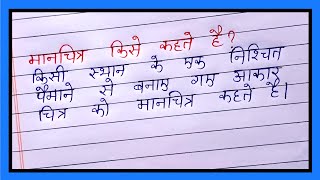 मानचित्र किसे कहते है?
किसी स्थान के एक निश्चित
पैमाने से बनाए गए आकार
चित्र को मानचित्र कहते है।